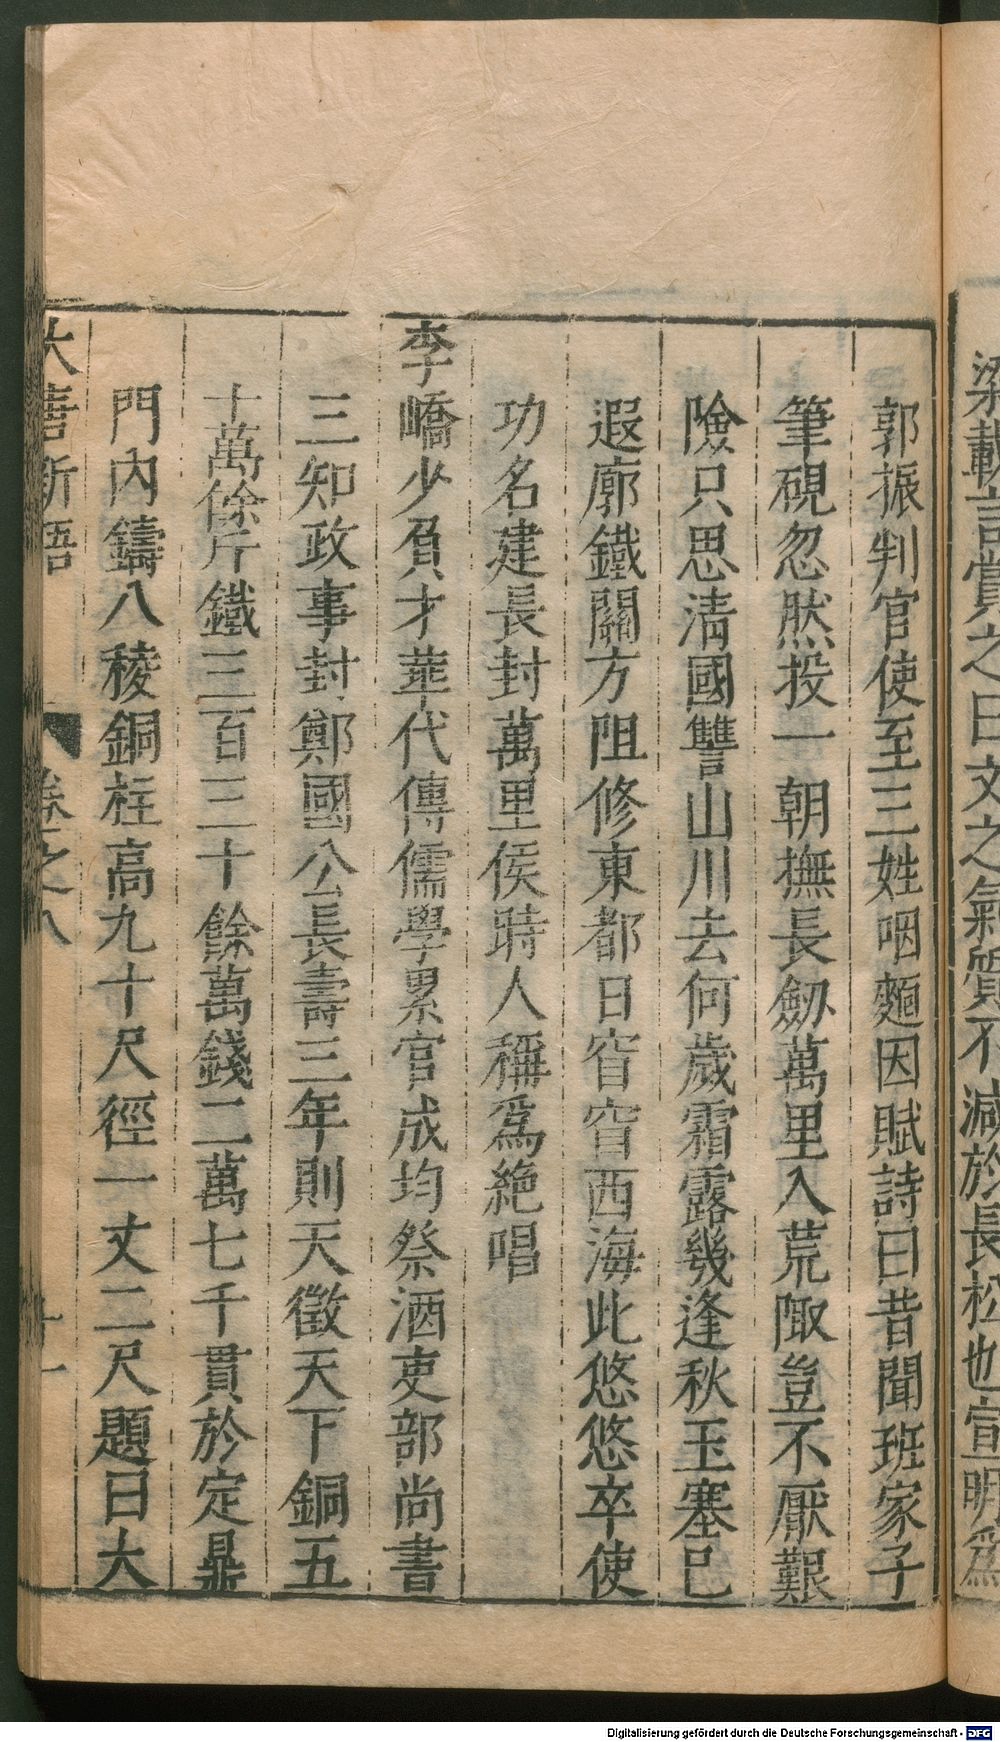 梁載言賞之曰文之氣質不減於長松也宣明爲
郭振判官使至三姓咽麵因賦詩曰昔聞班家子
筆硯忽然投一朝撫長劒萬里入荒陬豈不厭艱
險只思清國讐山川去何歲霜露幾逢秋玉塞已
遐廓鐵關方阻修東都日窅窅西海此悠悠卒使
功名建長封萬里侯時人稱爲絶唱
李嶠少負才華代傳儒學累官成均祭酒吏部尚書
三知政事封鄭國公長壽三年則天徵天下銅五
十萬餘斤鐵三百三十餘萬錢二萬七千貫於定鼎
門內鑄八稜銅柱高九十尺徑一丈二尺題曰大
大唐新語 卷之八 十一
Digitalisierung gefördert durch die Deutsche Forschungsgemeinschaft - DFG